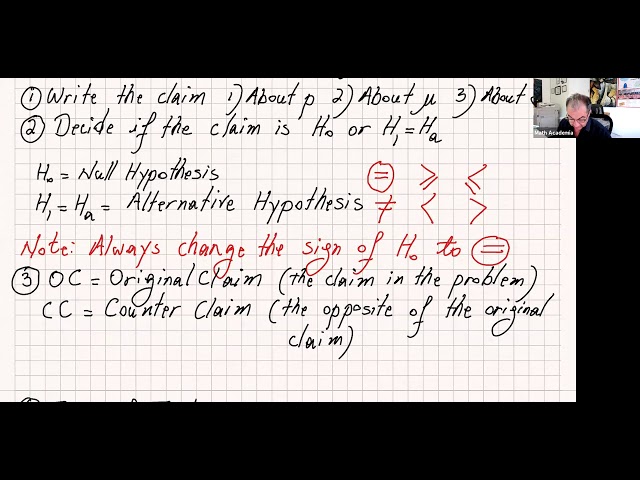 ① Write the claim 1) About p 2) About μ 3) About
② Decide if the claim is H₀ or H₁ = Hₐ
H₀ = Null Hypothesis = ≥ ≤
H₁ = Hₐ = Alternative Hypothesis ≠ < >
Note: Always change the sign of H₀ to =
③ OC = Original Claim (the claim in the problem)
CC = Counter Claim (the opposite of the original
claim)
Math Academia